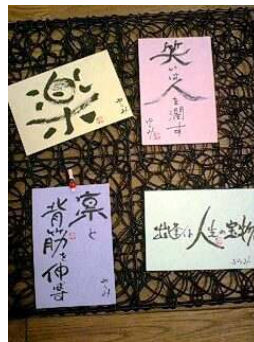 楽
笑いは
人を潤す
凛と
背筋を伸ばす
出逢いは人生の宝物